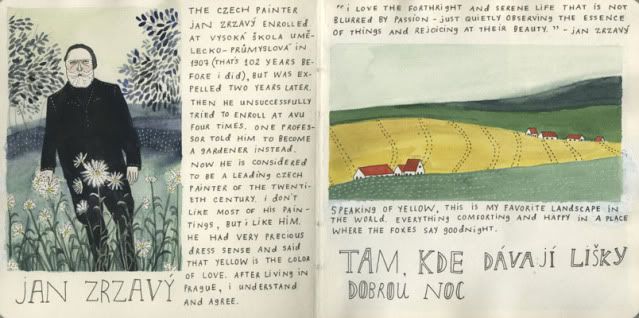 THE CZECH PAINTER
JAN ZRZAVÝ ENROLLED
AT VYSOKÁ ŠKOLA UMĚ-
LECKO-PRŮMYSLOVÁ IN
1907 (THAT'S 102 YEARS BE-
FORE I DID), BUT WAS EX-
PELLED TWO YEARS LATER.
THEN HE UNSUCCESSFULLY
TRIED TO ENROLL AT AVU
FOUR TIMES. ONE PROFES-
SOR TOLD HIM TO BECOME
A GARDENER INSTEAD.
NOW HE IS CONSIDERED
TO BE A LEADING CZECH
PAINTER OF THE TWENTI-
ETH CENTURY. I DON'T
LIKE MOST OF HIS PAIN-
TINGS, BUT I LIKE HIM.
HE HAD VERY PRECIOUS
DRESS SENSE AND SAID
THAT YELLOW IS THE COLOR
OF LOVE. AFTER LIVING IN
PRAGUE, I UNDERSTAND
AND AGREE.
JAN ZRZAVÝ
"I LOVE THE FORTHRIGHT AND SERENE LIFE THAT IS NOT
BLURRED BY PASSION - JUST QUIETLY OBSERVING THE ESSENCE
OF THINGS AND REJOICING AT THEIR BEAUTY." - JAN ZRZAVÝ
SPEAKING OF YELLOW, THIS IS MY FAVORITE LANDSCAPE IN
THE WORLD. EVERYTHING COMFORTING AND HAPPY IN A PLACE
WHERE THE FOXES SAY GOODNIGHT.
TAM, KDE DÁVAJÍ LIŠKY
DOBROU NOC